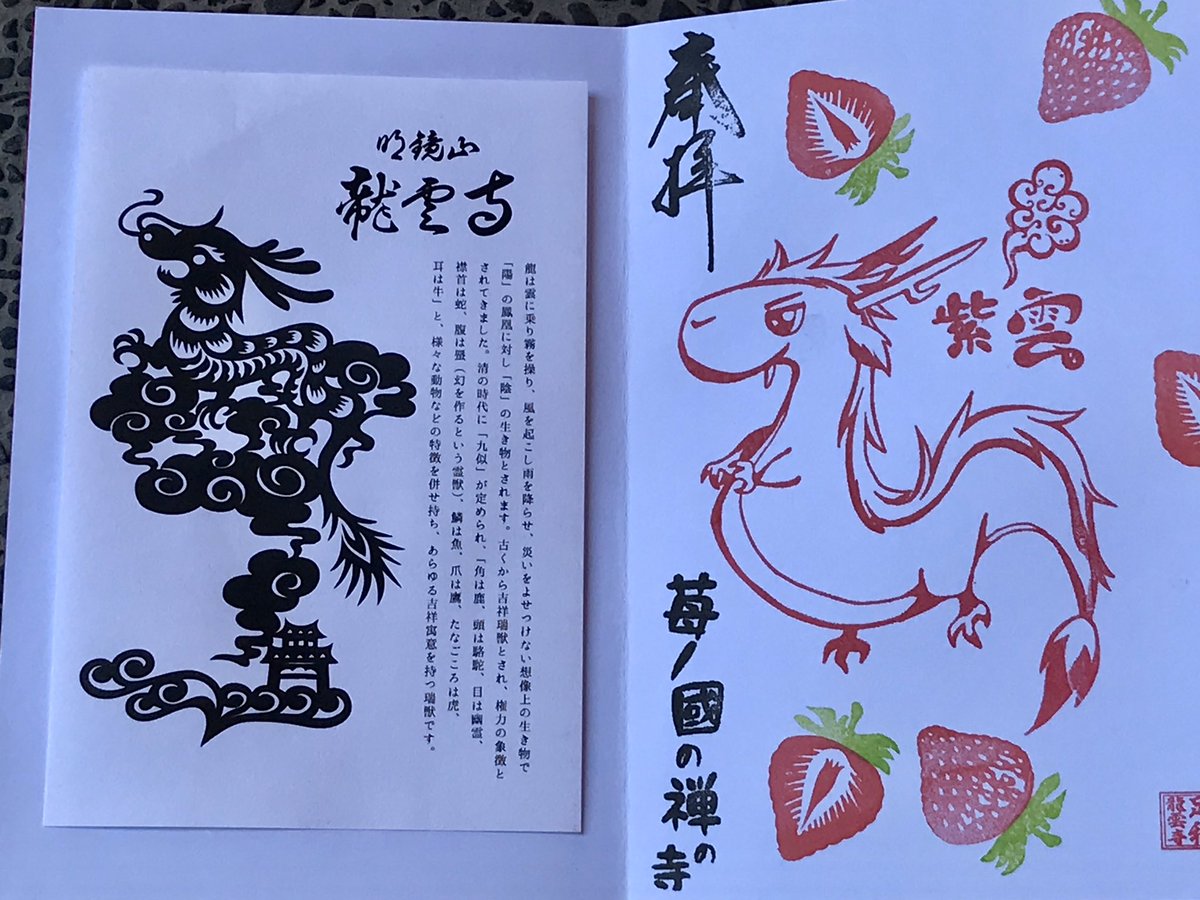 明鏡山
龍雲寺
龍は雲に乗り霧を操り、風を起こし雨を降らせ、災いをよせつけない想像上の生き物で
「陽」の鳳凰に対し「陰」の生き物とされます。古くから吉祥瑞獣とされ、権力の象徴と
されてきました。清の時代に「九似」が定められ、「角は鹿、頭は駱駝、目は幽霊、
襟首は蛇、腹は蜃（幻を作るという霊獣）、鱗は魚、爪は鷹、たなごころは虎、
耳は牛」と、様々な動物などの特徴を併せ持ち、あらゆる吉祥寓意を持つ瑞獣です。
奉拝
紫雲
苺ノ國の禅の寺
龍雲寺